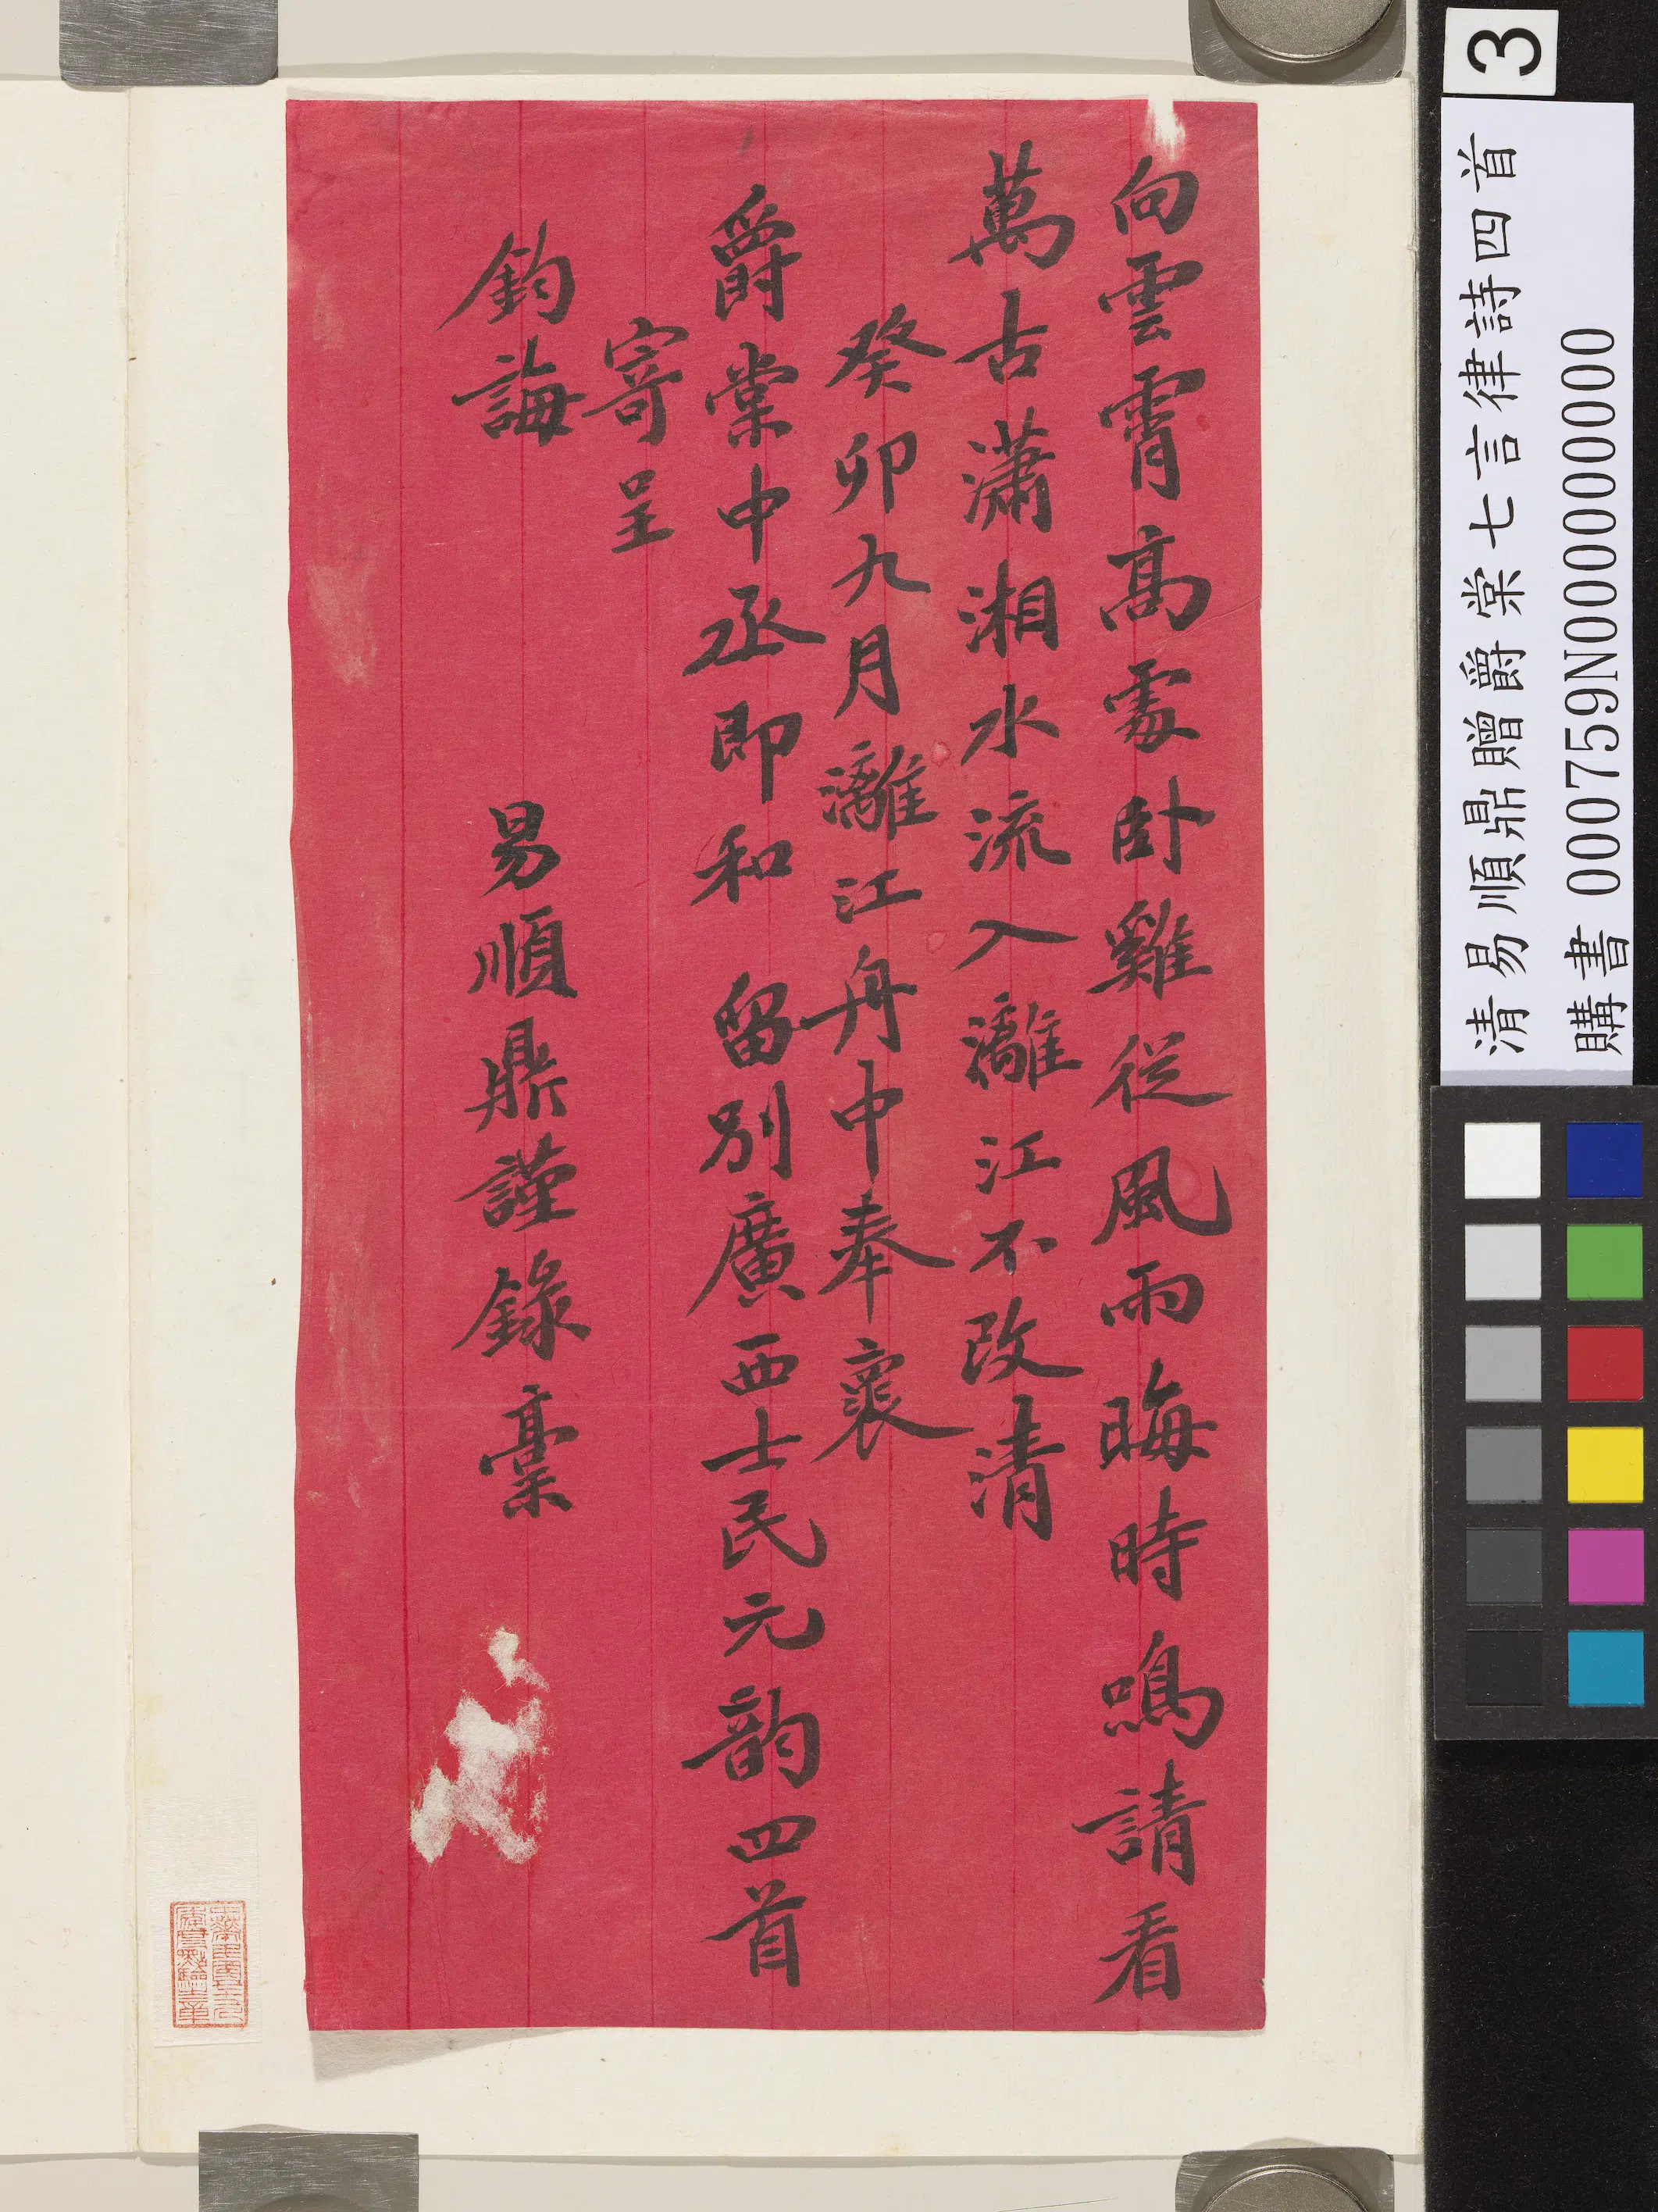 向雲霄高處卧雞從風雨晦時鳴請看
萬古瀟湘水流入灕江不改清
癸卯九月灕江舟中奉褱
爵棠中丞即和 留別廣西士民元韵四首
寄呈
鈞誨
易順鼎謹錄稾
3
清易順鼎贈爵棠七言律詩四首
購書 000759N000000000